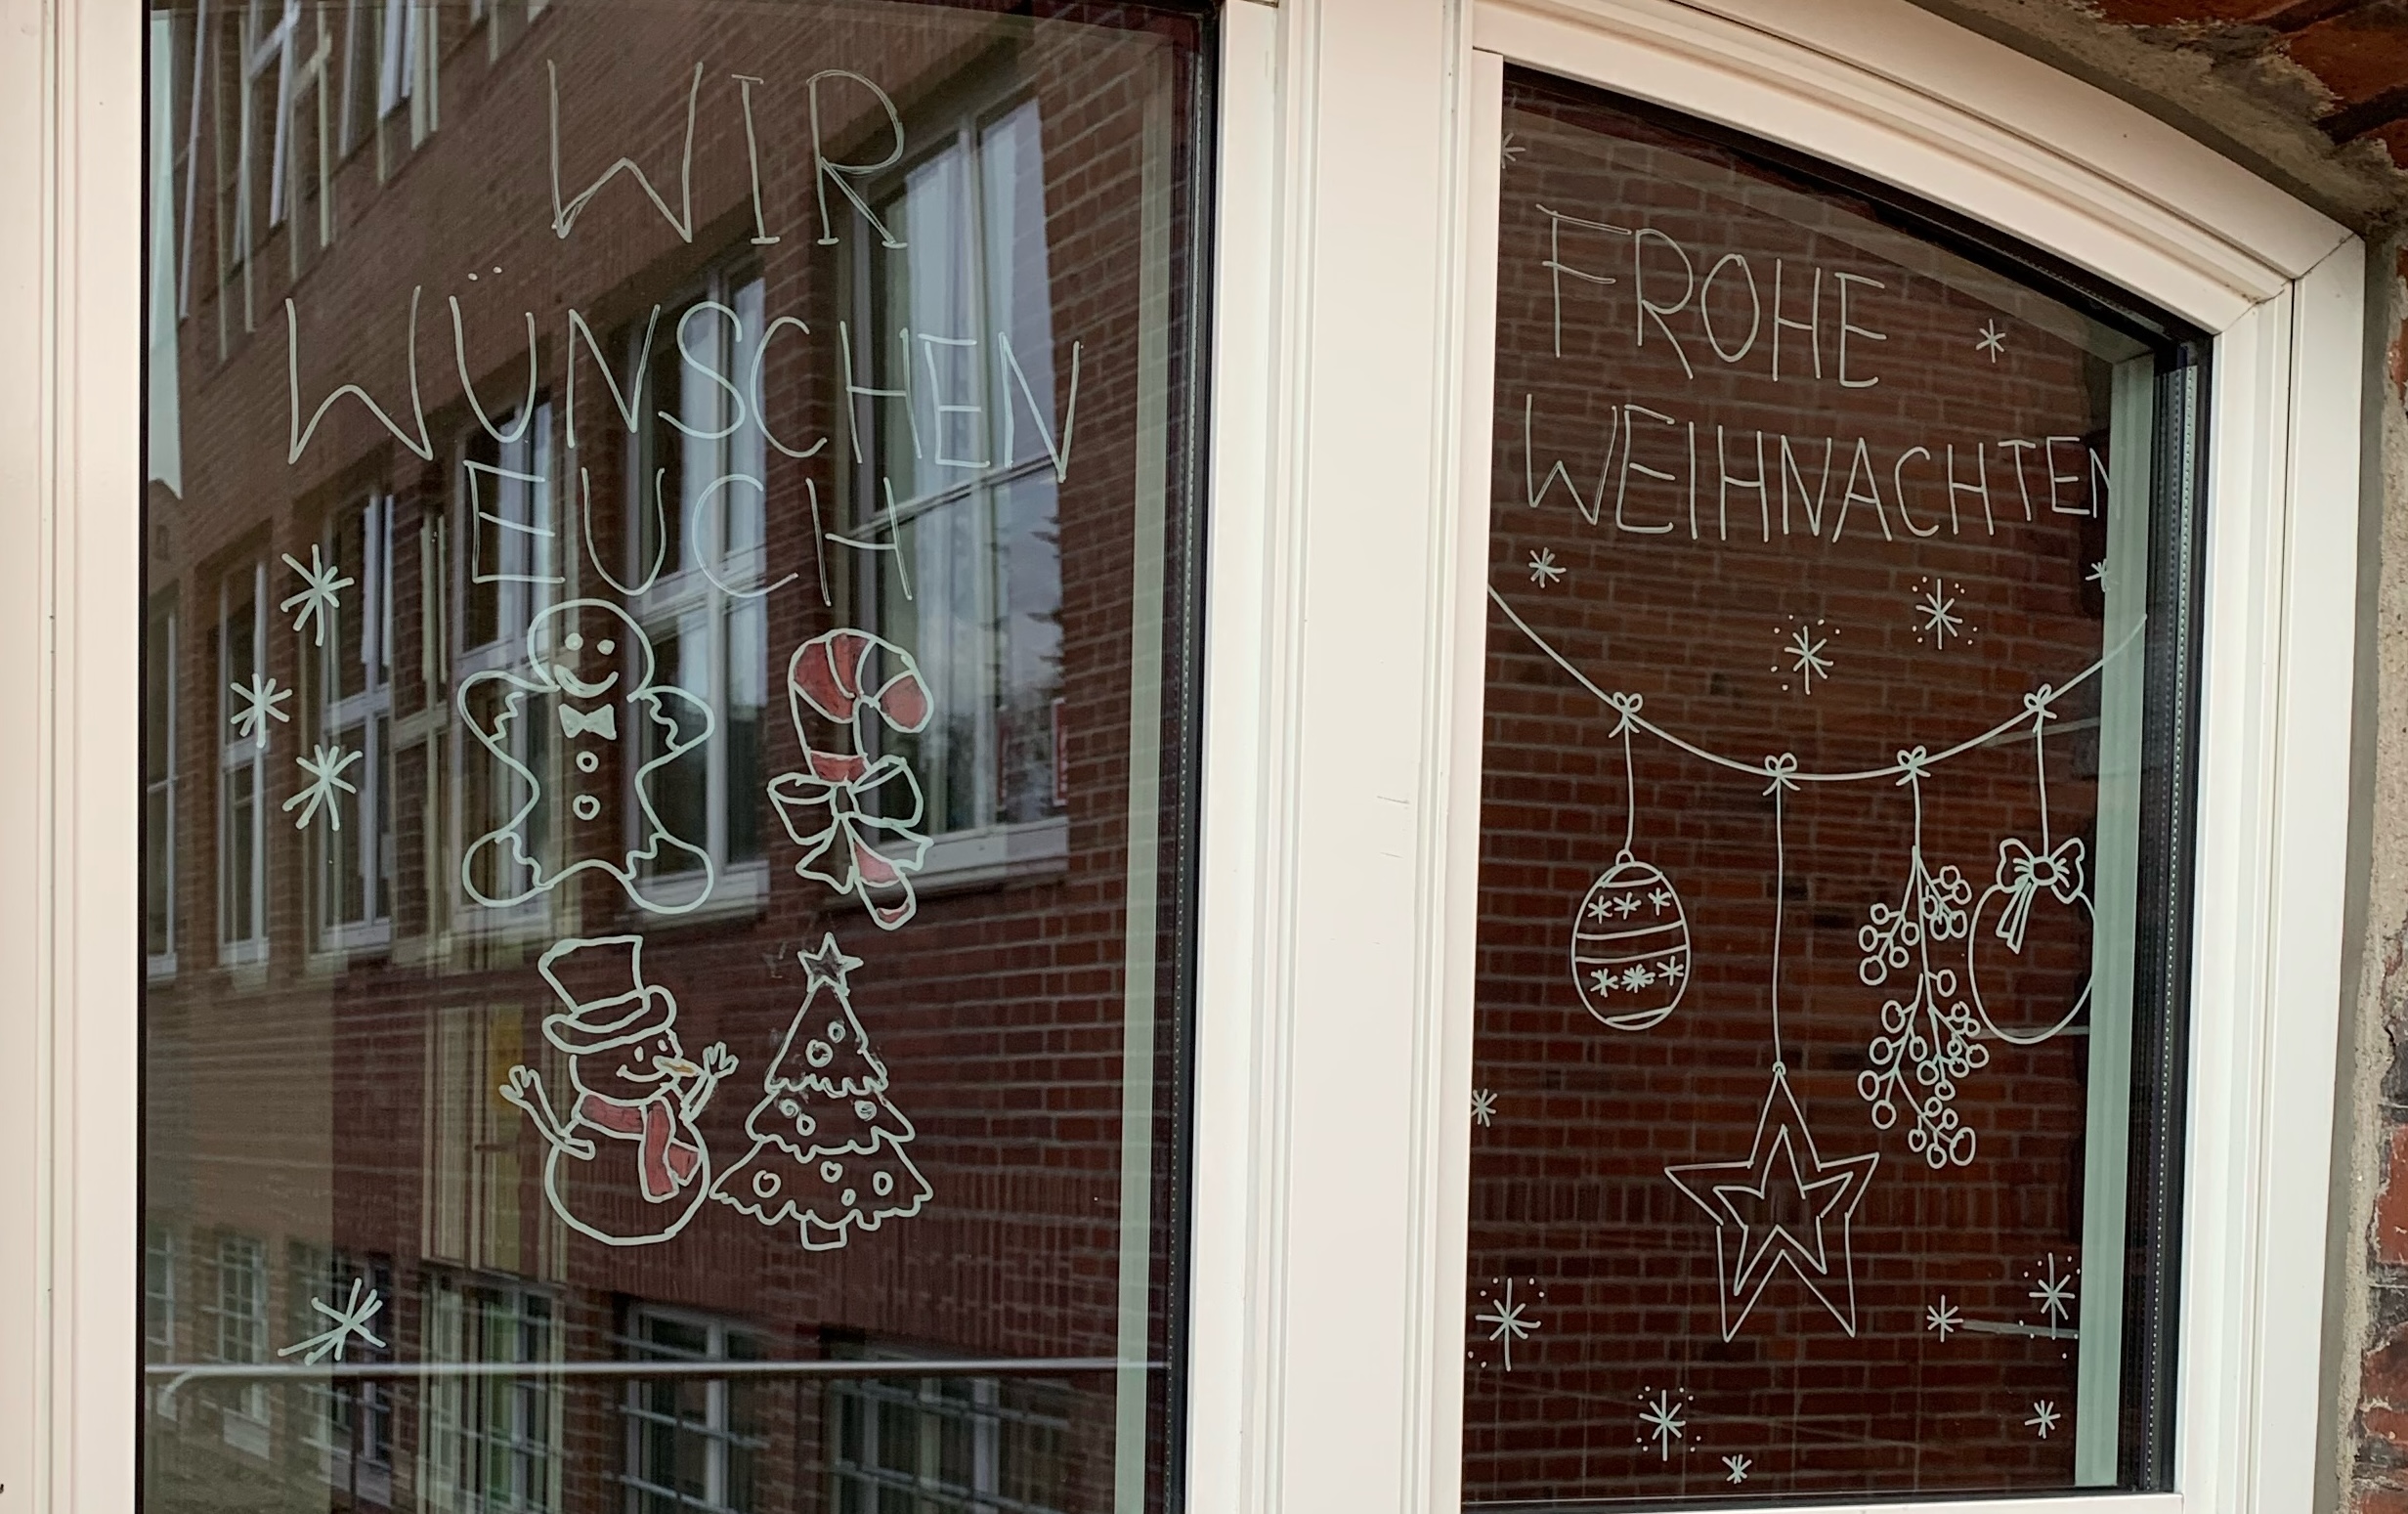 WIR
WÜNSCHEN
EUCH
FROHE
WEIHNACHTEN